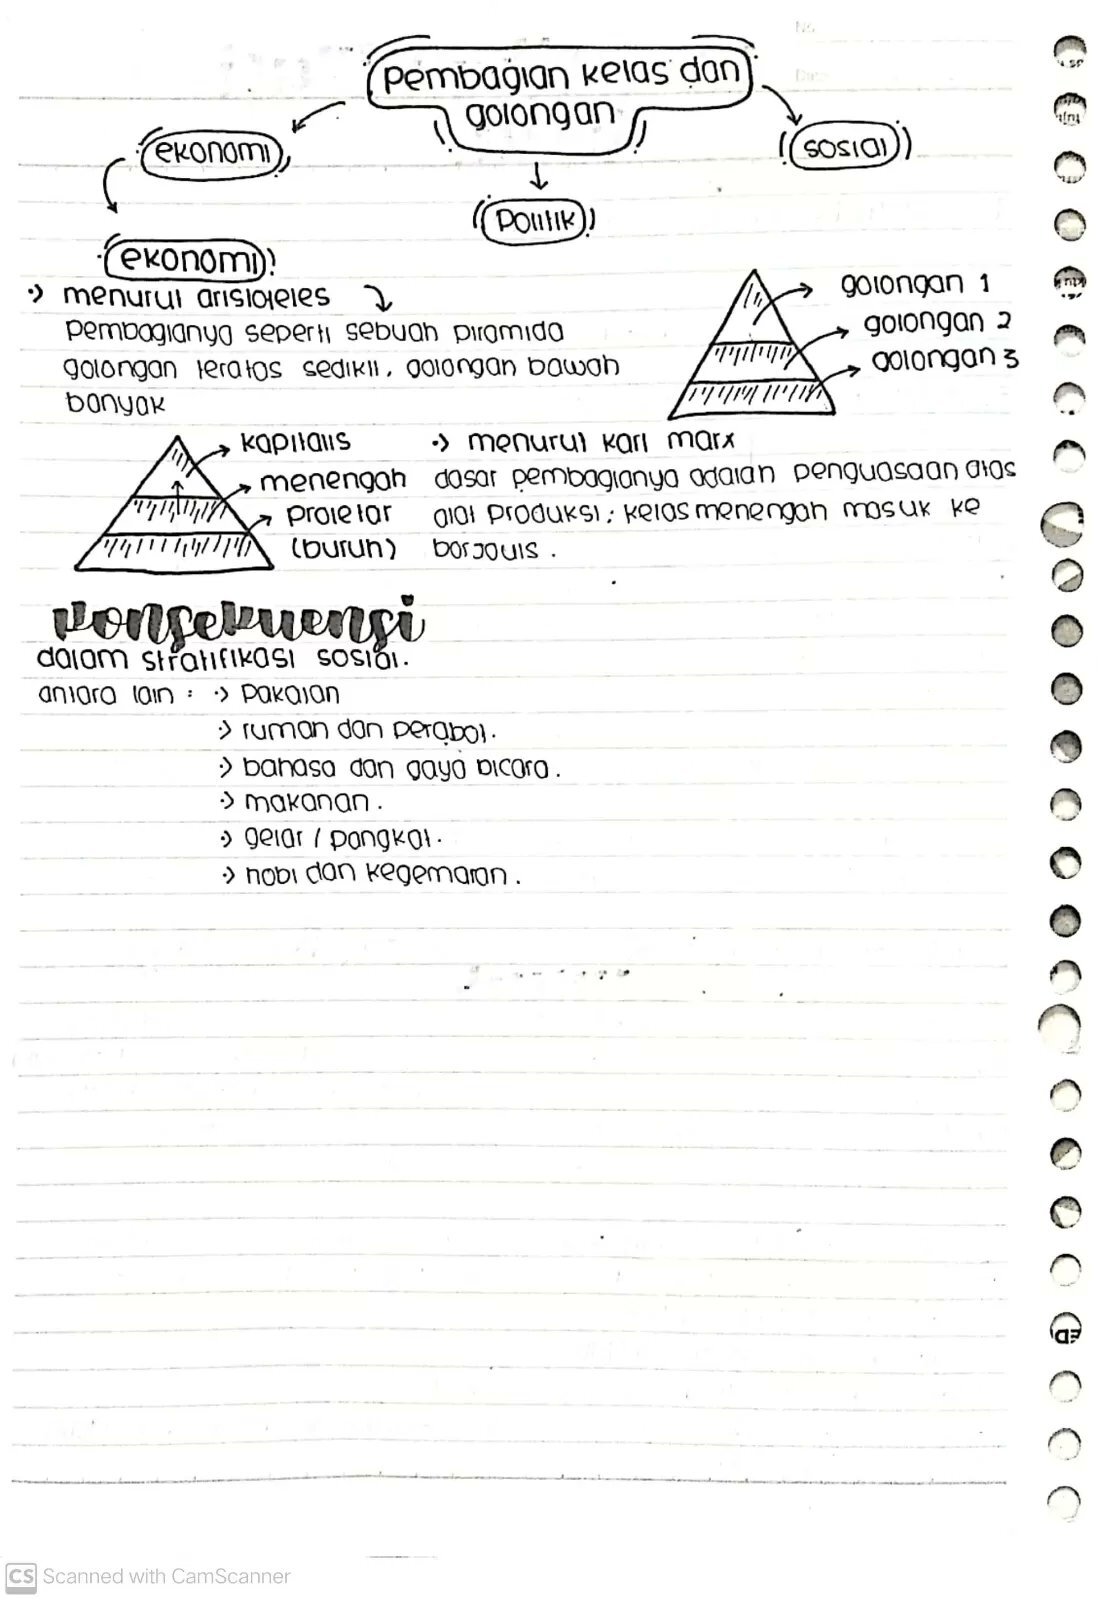 No
Date
Pembagian kelas dan
golongan
ekonomi
sosial
Politik
ekonomi
menurut aristoteles
Pembagianya seperti sebuah piramida
golongan teratas sedikit, golongan bawah
banyak
golongan 1
golongan 2
golongan 3
kapitalis
menengah
Proletar
(buruh)
menurut karl marx
dasar pembagianya adalah penguasaan atas
alat Produksi; kelas menengah masuk ke
borjouis.
konsekuensi
dalam stratifikasi sosial.
antara lain : Pakaian
rumah dan perabot.
bahasa dan gaya bicara.
makanan.
gelar / pangkat.
hobi dan kegemaran.
CS Scanned with CamScanner